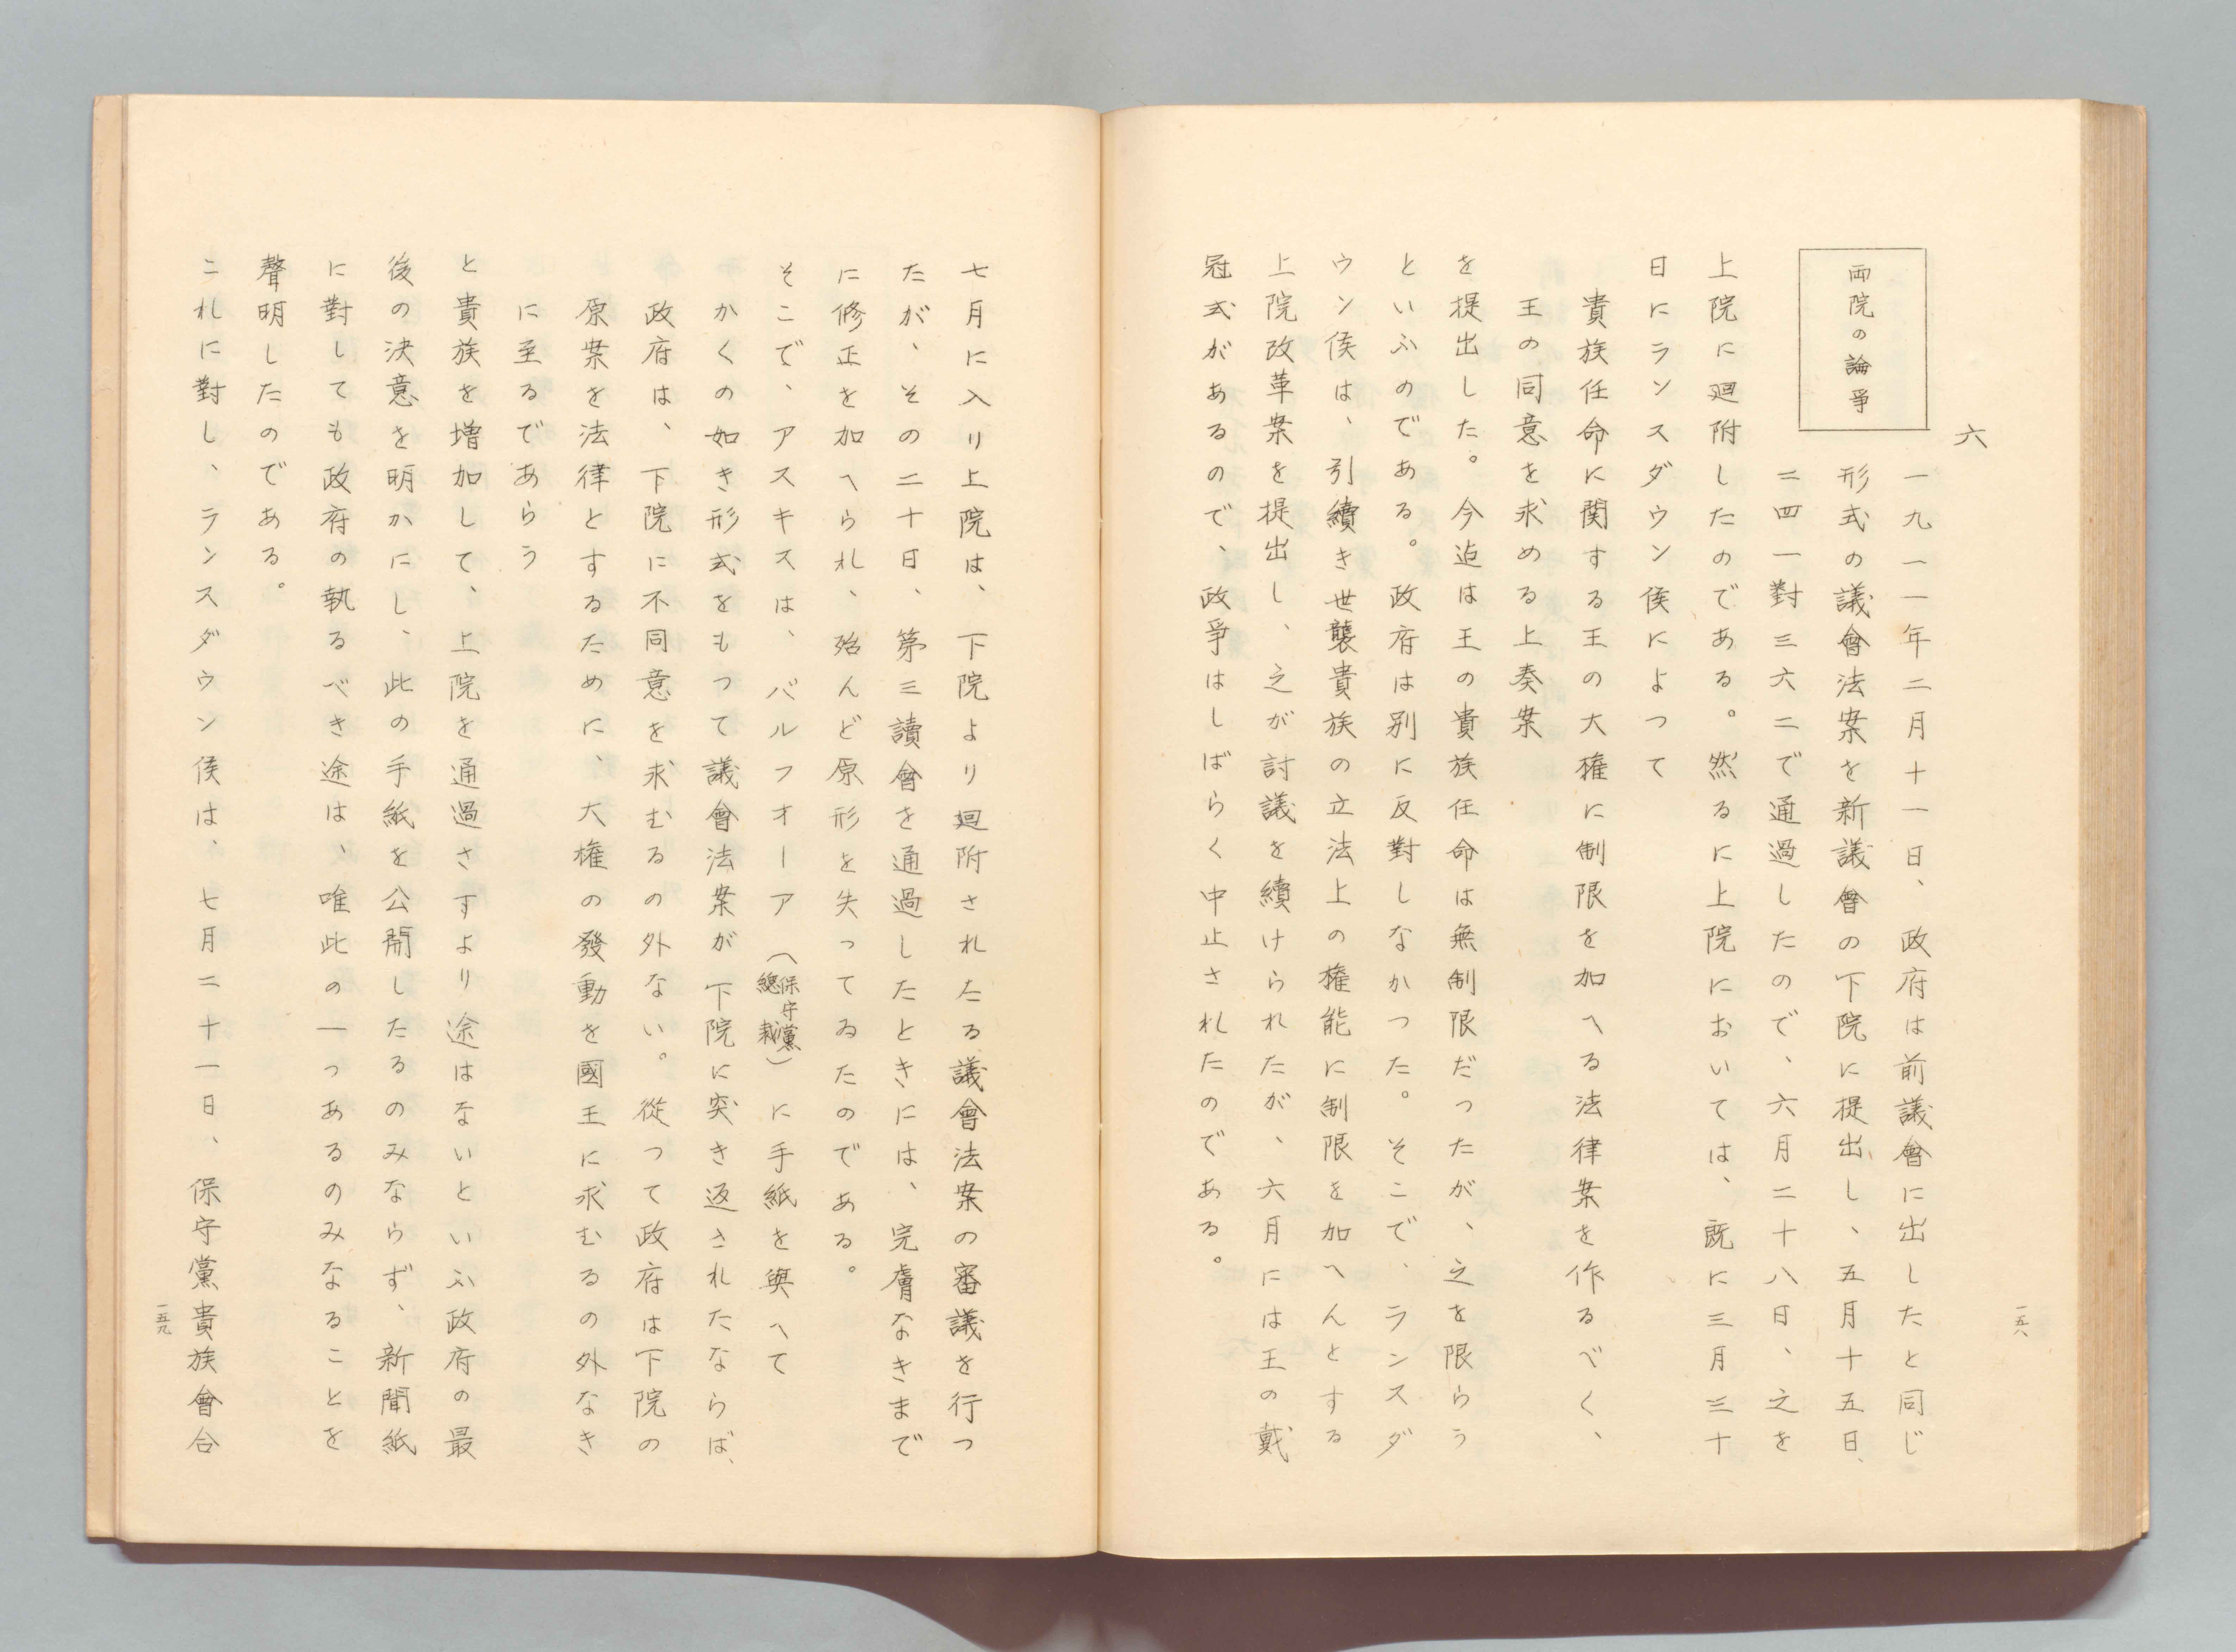 六
両院の論爭
一九一一年二月十一日、政府は前議會に出したと同じ
形式の議會法案を新議會の下院に提出し、五月十五日、
二四一對三六二で通過したので、六月二十八日、之を
上院に廻附したのである。然るに上院においては、既に三月三十
日にランスダウン侯によつて
貴族任命に関する王の大権に制限を加へる法律案を作るべく、
王の同意を求める上奏案
を提出した。今迠は王の貴族任命は無制限だったが、之を限らう
といふのである。政府は別に反對しなかつた。そこで、ランスダ
ウン侯は、引續き世襲貴族の立法上の権能に制限を加へんとする
上院改革案を提出し、之が討議を續けられたが、六月には王の戴
冠式があるので、政爭はしばらく中止されたのである。
一五八
七月に入り上院は、下院より廻附されたる議會法案の審議を行つ
たが、その二十日、第三讀會を通過したときには、完膚なきまで
に修正を加へられ、殆んど原形を失ってゐたのである。
そこで、アスキスは、バルフオーア（保守黨總裁）に手紙を與へて
かくの如き形式をもつて議會法案が下院に突き返されたならば、
政府は、下院に不同意を求むるの外ない。從つて政府は下院の
原案を法律とするために、大権の發動を國王に求むるの外なき
に至るであらう
と貴族を増加して、上院を通過さすより途はないといふ政府の最
後の決意を明かにし、此の手紙を公開したるのみならず、新聞紙
に對しても政府の執るべき途は、唯此の一つあるのみなることを
聲明したのである。
これに對し、ランスダウン侯は、七月二十一日、保守黨貴族會合
一五九